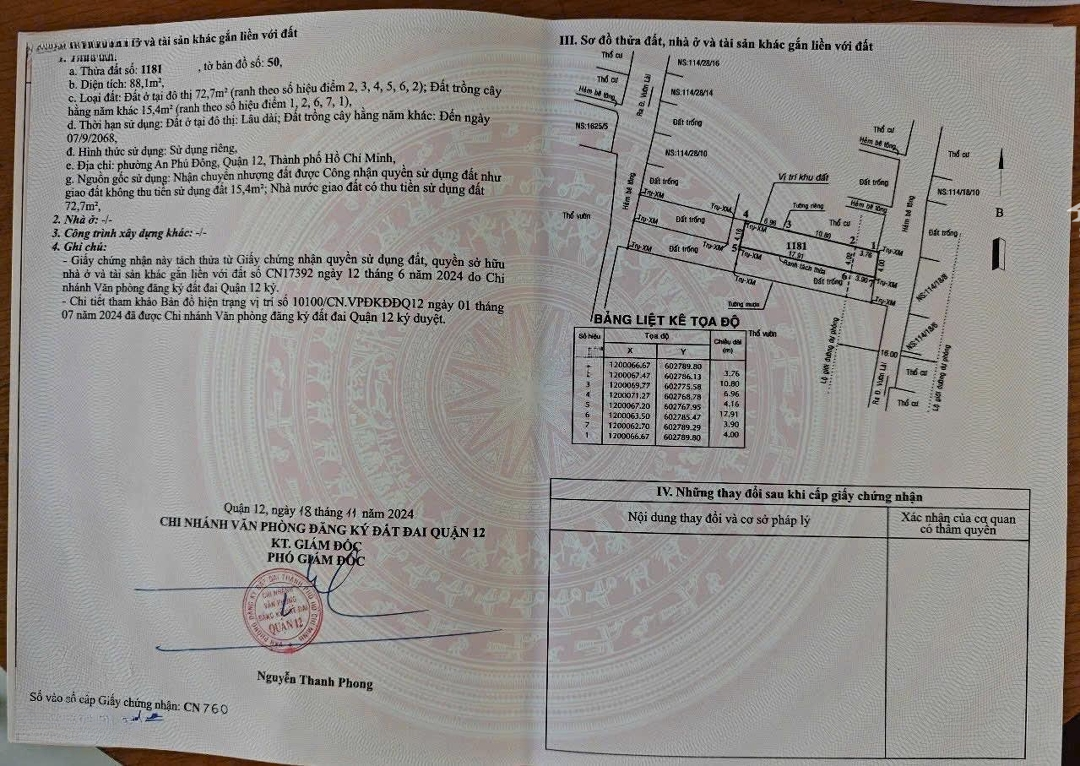 ở và tài sản khác gắn liền với đất
a. Thửa đất số: 1181 , tờ bản đồ số: 50,
b. Diện tích: 88,1m²,
c. Loại đất: Đất ở tại đô thị 72,7m² (ranh theo số hiệu điểm 2, 3, 4, 5, 6, 2); Đất trồng cây
hằng năm khác 15,4m² (ranh theo số hiệu điểm 1, 2, 6, 7, 1),
d. Thời hạn sử dụng: Đất ở tại đô thị: Lâu dài; Đất trồng cây hằng năm khác: Đến ngày
07/9/2068,
đ. Hình thức sử dụng: Sử dụng riêng,
e. Địa chỉ: phường An Phú Đông, Quận 12, Thành phố Hồ Chí Minh,
g. Nguồn gốc sử dụng: Nhận chuyển nhượng đất được Công nhận quyền sử dụng đất như
giao đất không thu tiền sử dụng đất 15,4m²; Nhà nước giao đất có thu tiền sử dụng đất
72,7m²,
2. Nhà ở: -/-
3. Công trình xây dựng khác: -/-
4. Ghi chú:
- Giấy chứng nhận này tách thửa từ Giấy chứng nhận quyền sử dụng đất, quyền sở hữu
nhà ở và tài sản khác gắn liền với đất số CN17392 ngày 12 tháng 6 năm 2024 do Chi
nhánh Văn phòng đăng ký đất đai Quận 12 ký.
- Chi tiết tham khảo Bản đồ hiện trạng vị trí số 10100/CN.VPĐKĐĐQ12 ngày 01 tháng
07 năm 2024 đã được Chi nhánh Văn phòng đăng ký đất đai Quận 12 ký duyệt.
Quận 12, ngày 18 tháng 11 năm 2024
CHI NHÁNH VĂN PHÒNG ĐĂNG KÝ ĐẤT ĐAI QUẬN 12
KT. GIÁM ĐỐC
PHÓ GIÁM ĐỐC
CHI NHÁNH
VĂN PHÒNG
ĐĂNG KÝ ĐẤT ĐAI
QUẬN 12
Nguyễn Thanh Phong
Số vào sổ cấp Giấy chứng nhận: CN 760
III. Sơ đồ thửa đất, nhà ở và tài sản khác gắn liền với đất
Thổ cư
NS:114/28/16
Thổ cư
Hẻm bê tông
Ra Đ. Vườn Lài
NS:114/28/14
NS:1625/5
Đất trống
Thổ cư
Hẻm bê tông
Thổ cư
NS:114/28/10
Vị trí khu đất
Đất trống
NS:114/18/10
Hẻm bê tông
Đất trống
Trụ-XM
Tường riêng
Hẻm bê tông
Hẻm bê tông
B
Thổ vườn
Trụ-XM
Đất trống
Trụ-XM
4
6.96
3
10.80
Thổ cư
2
1
3.76
Trụ-XM
Đất trống
4.16
1181
17.91
Ranh tách thửa
4.00
Trụ-XM
Đất trống
Trụ-XM
5
6
3.90
7
Trụ-XM
Đất trống
Trụ-XM
NS:114/18/8
Tường mượn
Thổ vườn
NS:114/18/6
16.00
Lộ giới đường dự phòng
Thổ cư
Ra Đ. Vườn Lài
Thổ cư
Lộ giới đường dự phòng
BẢNG LIỆT KÊ TỌA ĐỘ
Số hiệu Tọa độ Chiều dài
X Y (m)
1200066.67 602789.80
1200067.47 602786.13 3.76
3 1200069.77 602775.58 10.80
4 1200071.27 602768.78 6.96
5 1200067.20 602767.95 4.16
6 1200063.50 602785.47 17.91
7 1200062.70 602789.29 3.90
1 1200066.67 602789.80 4.00
IV. Những thay đổi sau khi cấp giấy chứng nhận
Nội dung thay đổi và cơ sở pháp lý
Xác nhận của cơ quan
có thẩm quyền